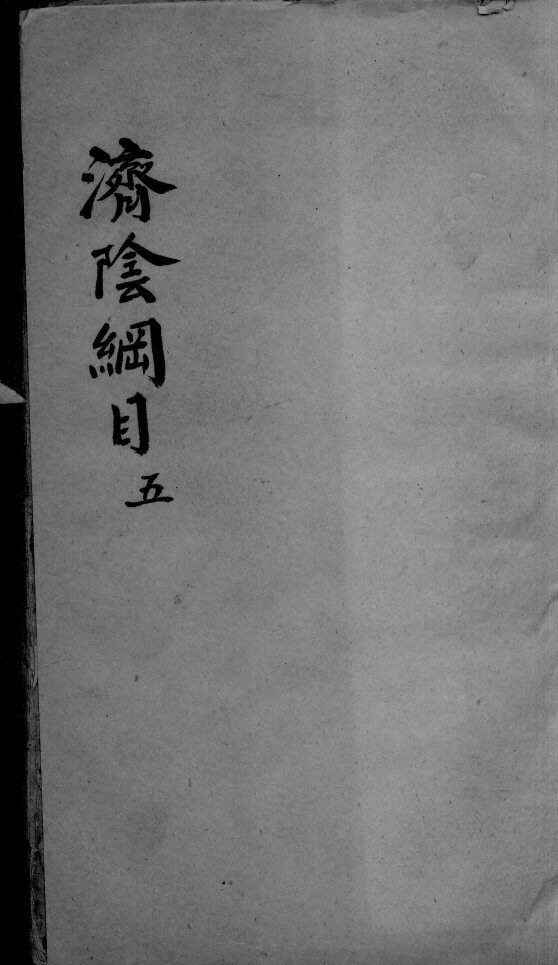 濟陰綱目五